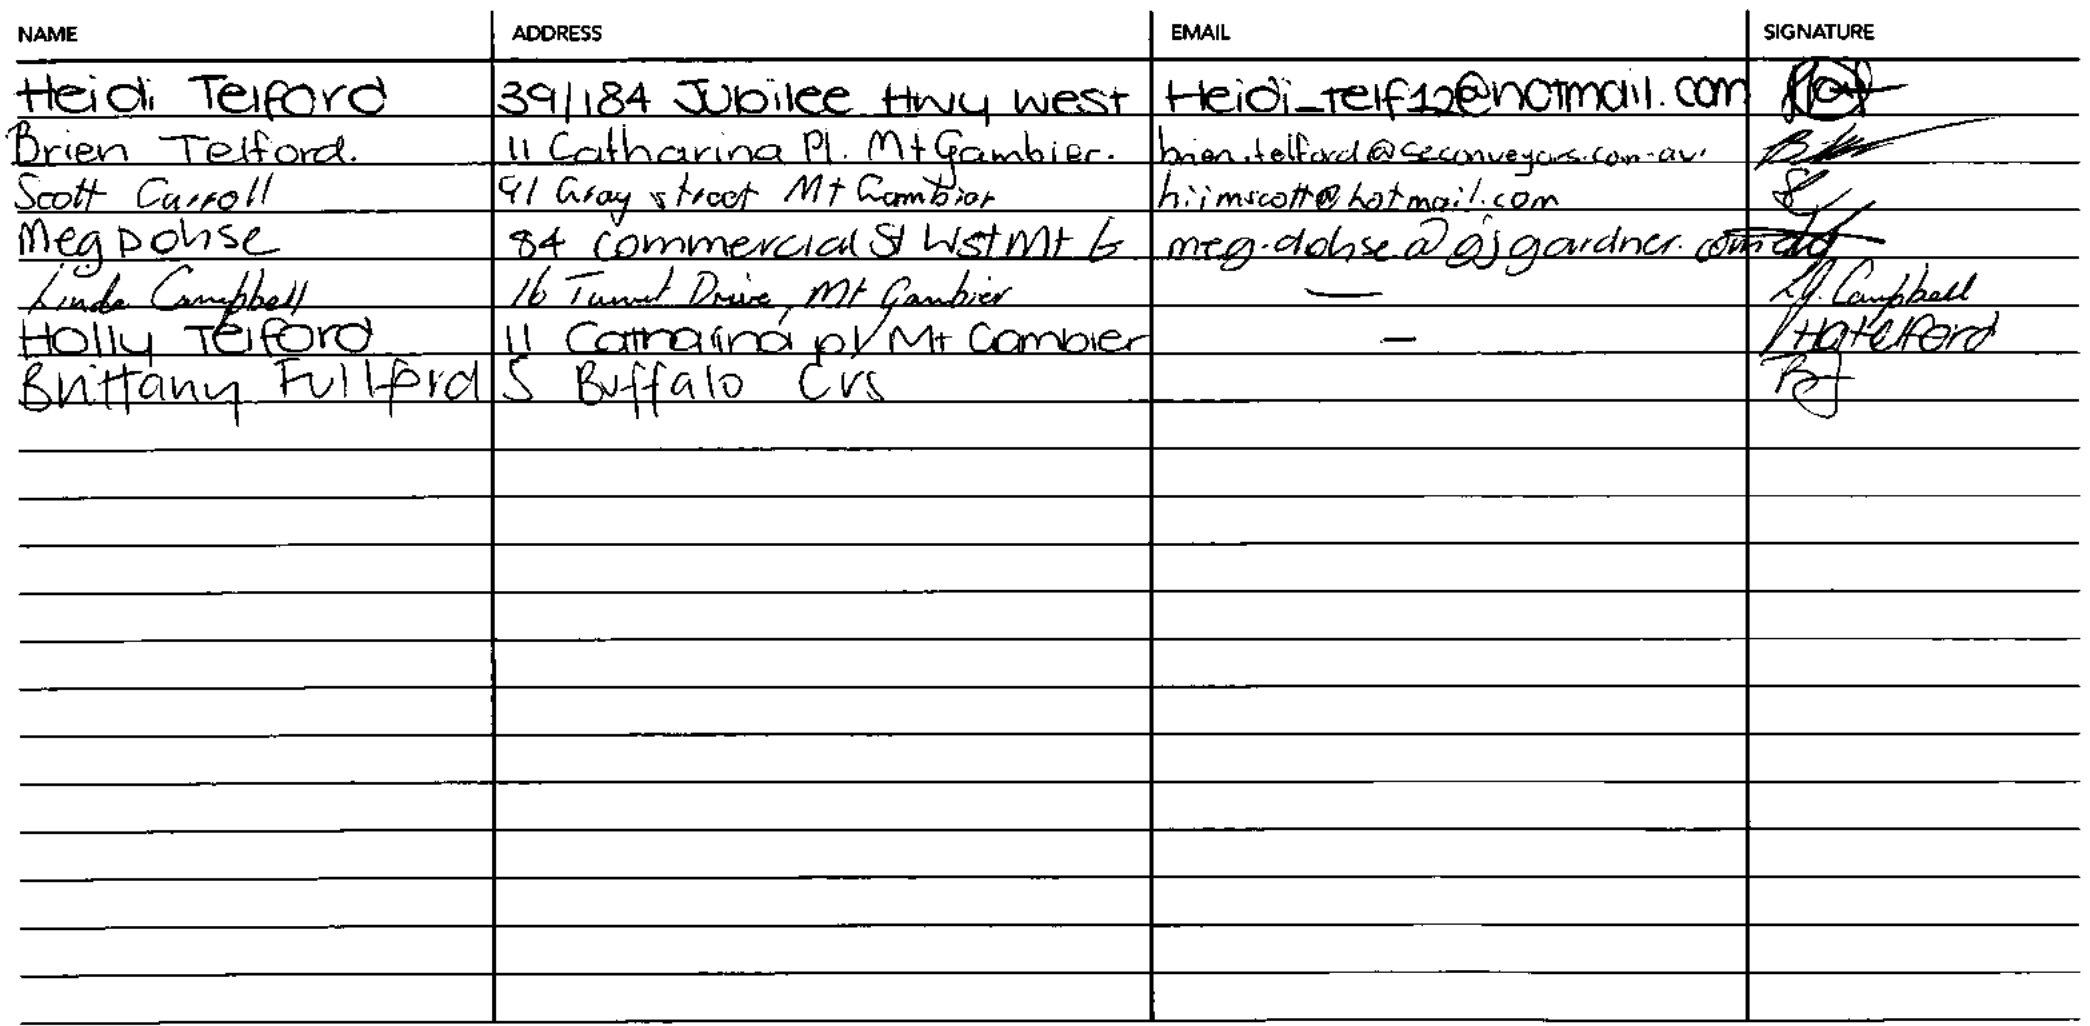 NAME ADDRESS EMAIL SIGNATURE
Heidi Telford 39/184 Jubilee Hwy West Heidi_telf12@hotmail.com
Brien Telford. 11 Catharina Pl. Mt Gambier. brien.telford@seconveyors.com.au
Scott Carroll 91 Gray street Mt Gambier hiimscott@hotmail.com
Meg Dohse 84 Commercial St Wst Mt G meg.dohse@gjgardner.com.au
Linda Campbell 16 Drive, Mt Gambier — L.J. Campbell
Holly Telford 11 Catharina pl Mt Gambier — Hatelford
Brittany Fullford 5 Buffalo Crs